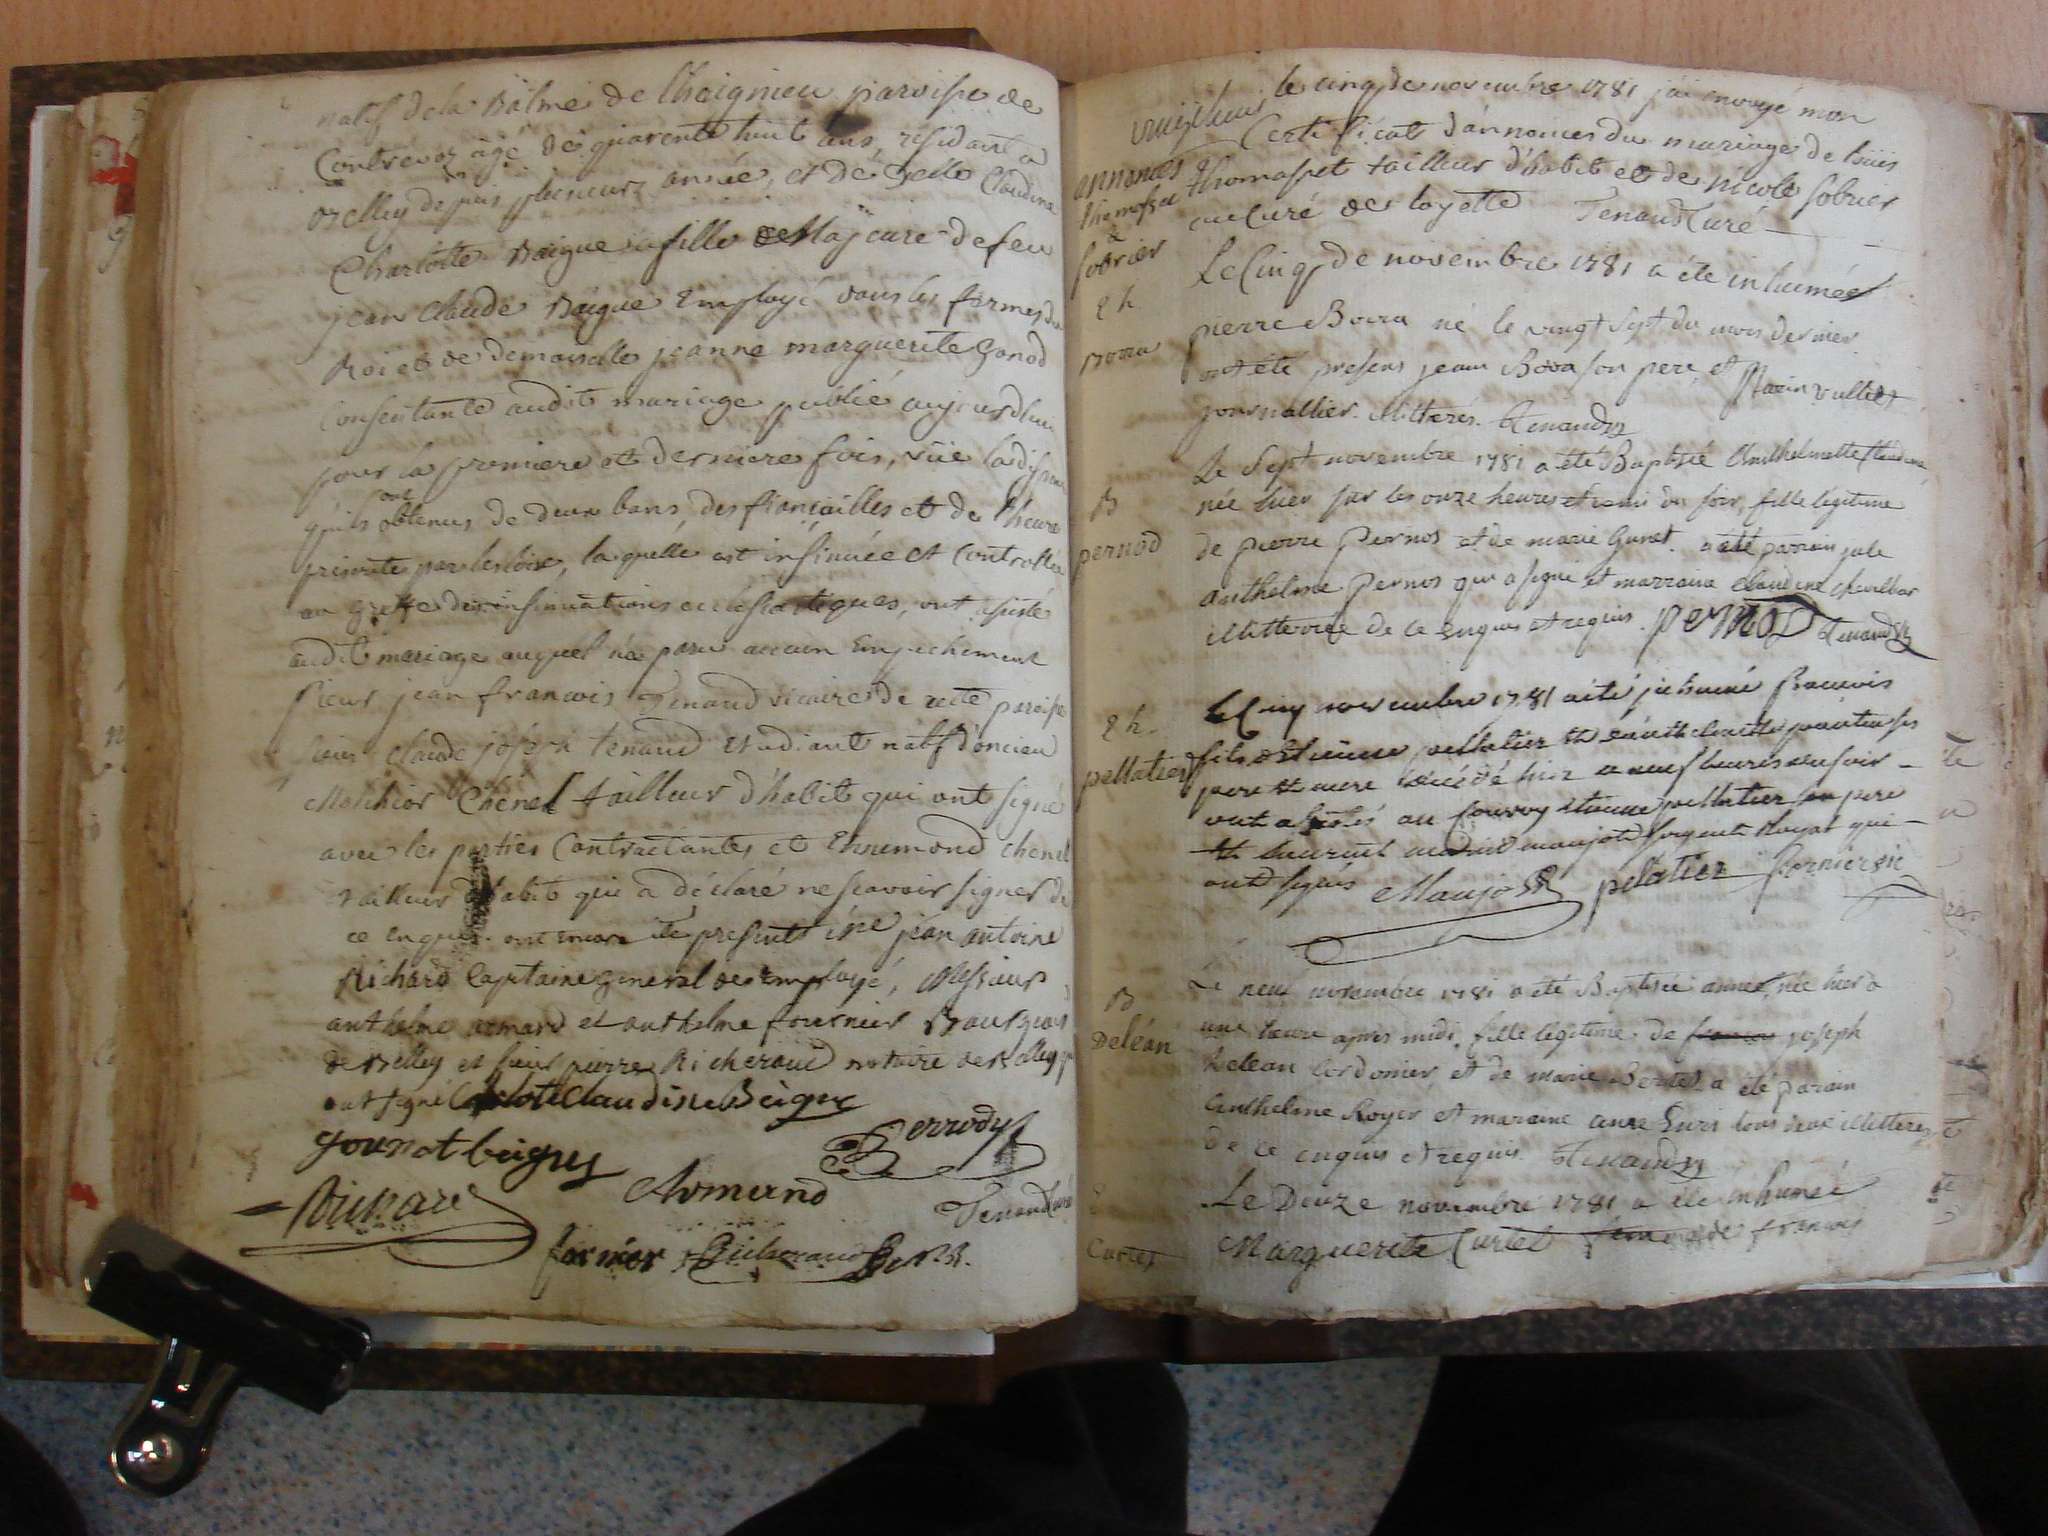 natif de la Balme de Choignieu paroisse de
Contrevoz âgé de quarente huit ans, residant a
Belley depuis plusieurs année, et de Delle Claudine
Charlotte Baigue fille Majeure de feu
jean Claude Baigue Employé dans les fermes du
Roi et de demoiselle jeanne marguerite Gonod
Consentante audit mariage publié aujourd'hui
pour la premiere et derniere fois, vüe la dispense
qu'ils ont obtenus de deux bans, des fiançailles et de l'heure
par les loix, la quelle est insinuée et Controllée
au Greffe des insinuations ecclesiastiques, ont assisté
audit mariage auquel n'a paru aucun Empechement
sieur jean francois Tenand vicaire de cette paroisse
sieur Claude joseph tenand Etudiant natif d'oncieu
Melchior Chenel tailleur d'habit qui ont signé
avec les parties Contractantes et Ennemond chenel
tailleur d'habit qui a déclaré ne scavoir signer de
ce enquis. ont encore été presents jean antoine
Richard Capitaine general des Employé, Messieurs
anthelme armand et anthelme fournier Bourgeois
de Belley et sieur pierre Richerand notaire de Belley qui
ont signé Claudine Beigue
gounot beigue Perrody
Richard Armand Tenand Curé
fornier Richerand
le cinq de novembre 1781 j'ai envoyé mon
Certificat d'annonces du mariage de louis
annonces thomasset tailleur d'habit et de Nicole sobrier
thomasset
& au Curé de layette Tenand Curé
sobrier
Le Cinq de novembre 1781 a été inhumée
2 h.
pierre Bovra né le vingt sept du mois dernier
Bovra ont été presens jean son pere, et
journallier illitterés. Tenand
Le Sept novembre 1781 a été Baptisée Anthelmette Claudine
B née hier sur les onze heures et demi du soir, fille légitime
pernod de pierre Pernos et de marie a été parrain
anthelme Pernos qui a signé et marraine Claudine
illitterée de ce enquis et requis. pernod Tenand
novembre 1781 a été francois
2 h. fils d'Etienne pellatier et
pellatier pere et mere décédé hier a neuf heures du soir
ont assistés au Convoy Etienne pellatier son pere
et laurent sergent Royal qui
ont signés Maujot pelatier fornier
Le neuf novembre 1781 a été Baptisée anne, née hier a
B une heure apres midi, fille légitime de joseph
Deléan Delean Cordonier, et de marie a été parain
Anthelme Royer et maraine anne tous deux illitteres
de ce enquis et requis. Tenand
Le Douze novembre 1781 a été inhumée
Curtet Marguerite Curtet femme de francois